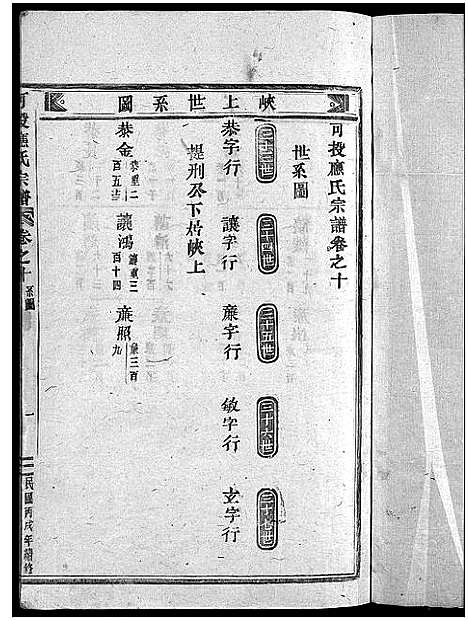 可投應氏宗譜卷之十
世系圖
三十三世 三十四世 三十五世 三十六世 三十七世
恭字行 讓字行 廉字行 敏字行 玄字行
提刑公下居峽上
恭金 恭重二百五十 讓鴻 讓重三百十四 廉照 廉三百九
峽上世系圖
可投應氏宗譜 卷之十 系圖 一 民國丙戌年續修